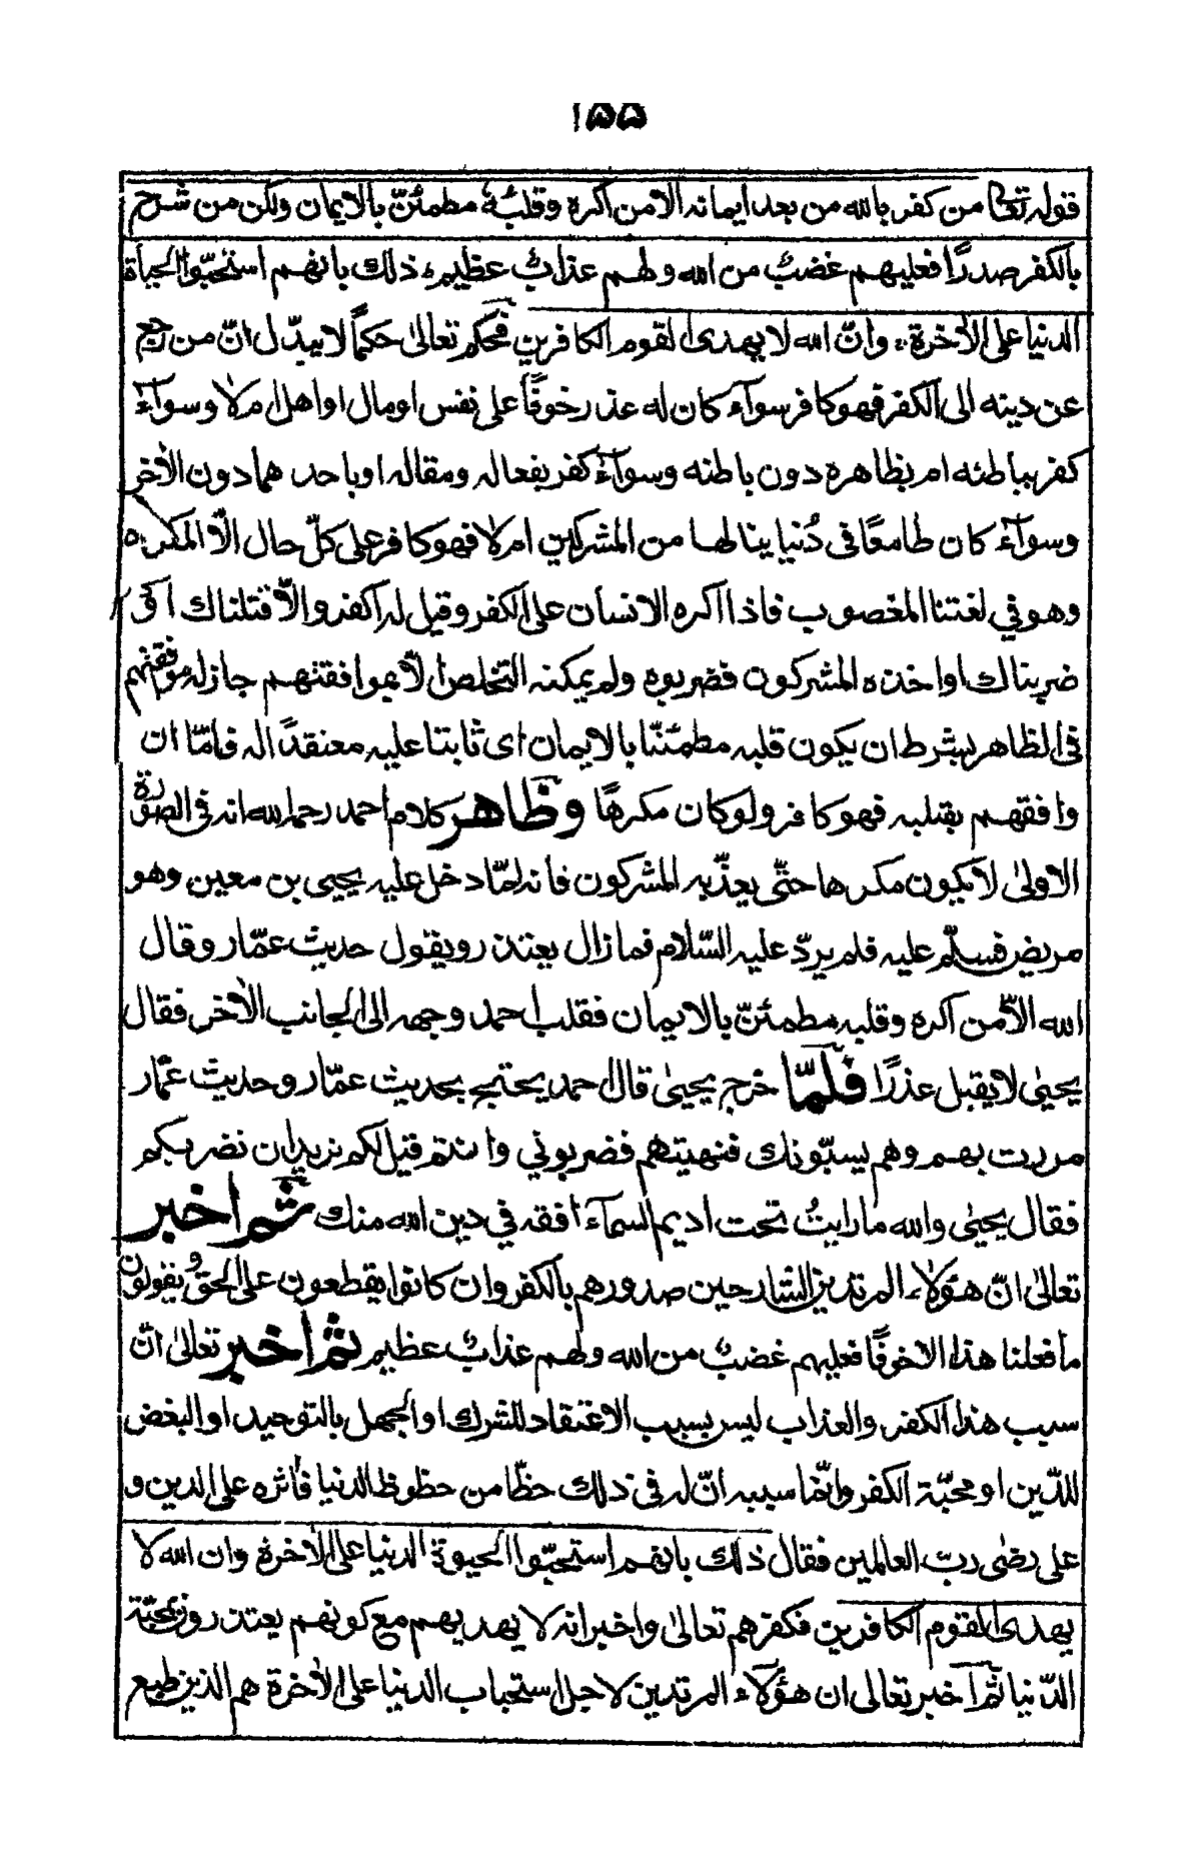 ۱۵۵
قوله تعالى من كفر بالله من بعد ايمانه الا من اكره وقلبُهٗ مطمئنّ بالايمان ولكن من شرح
بالكفر صدرًا فعليهم غضبٌ من الله ولهم عذابٌ عظيم ذلك بانهم استحبّوا الحياة
الدنيا على الاٰخرة وانّ الله لا يهدى القوم الكافرين فحكم تعالىٰ حكمًا لا يبدّل انّ من رجع
عن دينه الى الكفر فهو كافر سوآء كان له عذر خوفًا على نفس او مال او اهل ام لا وسوآء
كفر بباطنه ام بظاهره دون باطنه وسوآء كفر بفعاله ومقاله او باحدهما دون الاٰخر
وسوآء كان طامعًا فى دُنيا ينالها من المشركين ام لا فهو كافر على كلّ حال الّا المكره
وهو في لغتنا المغصوب فاذا اكره الانسان على الكفر وقيل له اكفر والّا قتلناك او
ضربناك او اخذه المشركون فضربوه ولم يمكنه التخلص الّا بموافقتهم جاز له موافقتهم
فى الظاهر بشرط ان يكون قلبه مطمئنّا بالايمان اى ثابتا عليه معتقدًا له فامّا ان
وافقهم بقلبه فهو كافر ولو كان مكرهًا وظاهر كلام احمد رحمه الله انه فى الصورة
الاولىٰ لا يكون مكرها حتّى يعذّبه المشركون فانه لمّا دخل عليه يحيى بن معين وهو
مريض فسلّم عليه فلم يردّ عليه السّلام فما زال يعتذر ويقول حديث عمّار وقال
الله الّا من اكره وقلبه مطمئنّ بالايمان فقلب احمد وجهه الى الجانب الاٰخر فقال
يحيىٰ لا يقبل عذرًا فلمّا خرج يحيىٰ قال احمد يحتج بحديث عمّار وحديث عمّار
مررت بهم وهم يسبّونك فنهيتهم فضربوني وانتم قيل لكم نريد ان نضربكم
فقال يحيىٰ والله ما رايتُ تحت اديم السمآء افقه في دين الله منك ثم اخبر
تعالىٰ انّ هؤلاء المرتدين الشارحين صدورهم بالكفر وان كانوا يقطعون على الحق ويقولون
ما فعلنا هذا الا خوفًا فعليهم غضبٌ من الله ولهم عذابٌ عظيم ثم اخبر تعالىٰ انّ
سبب هذا الكفر والعذاب ليس بسبب الاعتقاد للشرك او الجهل بالتوحيد او البغض
للدّين او محبّة الكفر وانّما سببه انّ له فى ذلك حظّا من حظوظ الدنيا فآثره على الدين و
على رضى ربّ العالمين فقال ذلك بانهم استحبّوا الحيوة الدنيا على الاٰخرة وان الله لا
يهدى القوم الكافرين فكفرهم تعالىٰ واخبر انه لا يهديهم مع كونهم يعتذرون بمحبّة
الدّنيا ثم اخبر تعالى ان هؤلاء المرتدين لاجل استحباب الدنيا على الاٰخرة هم الذين طبع